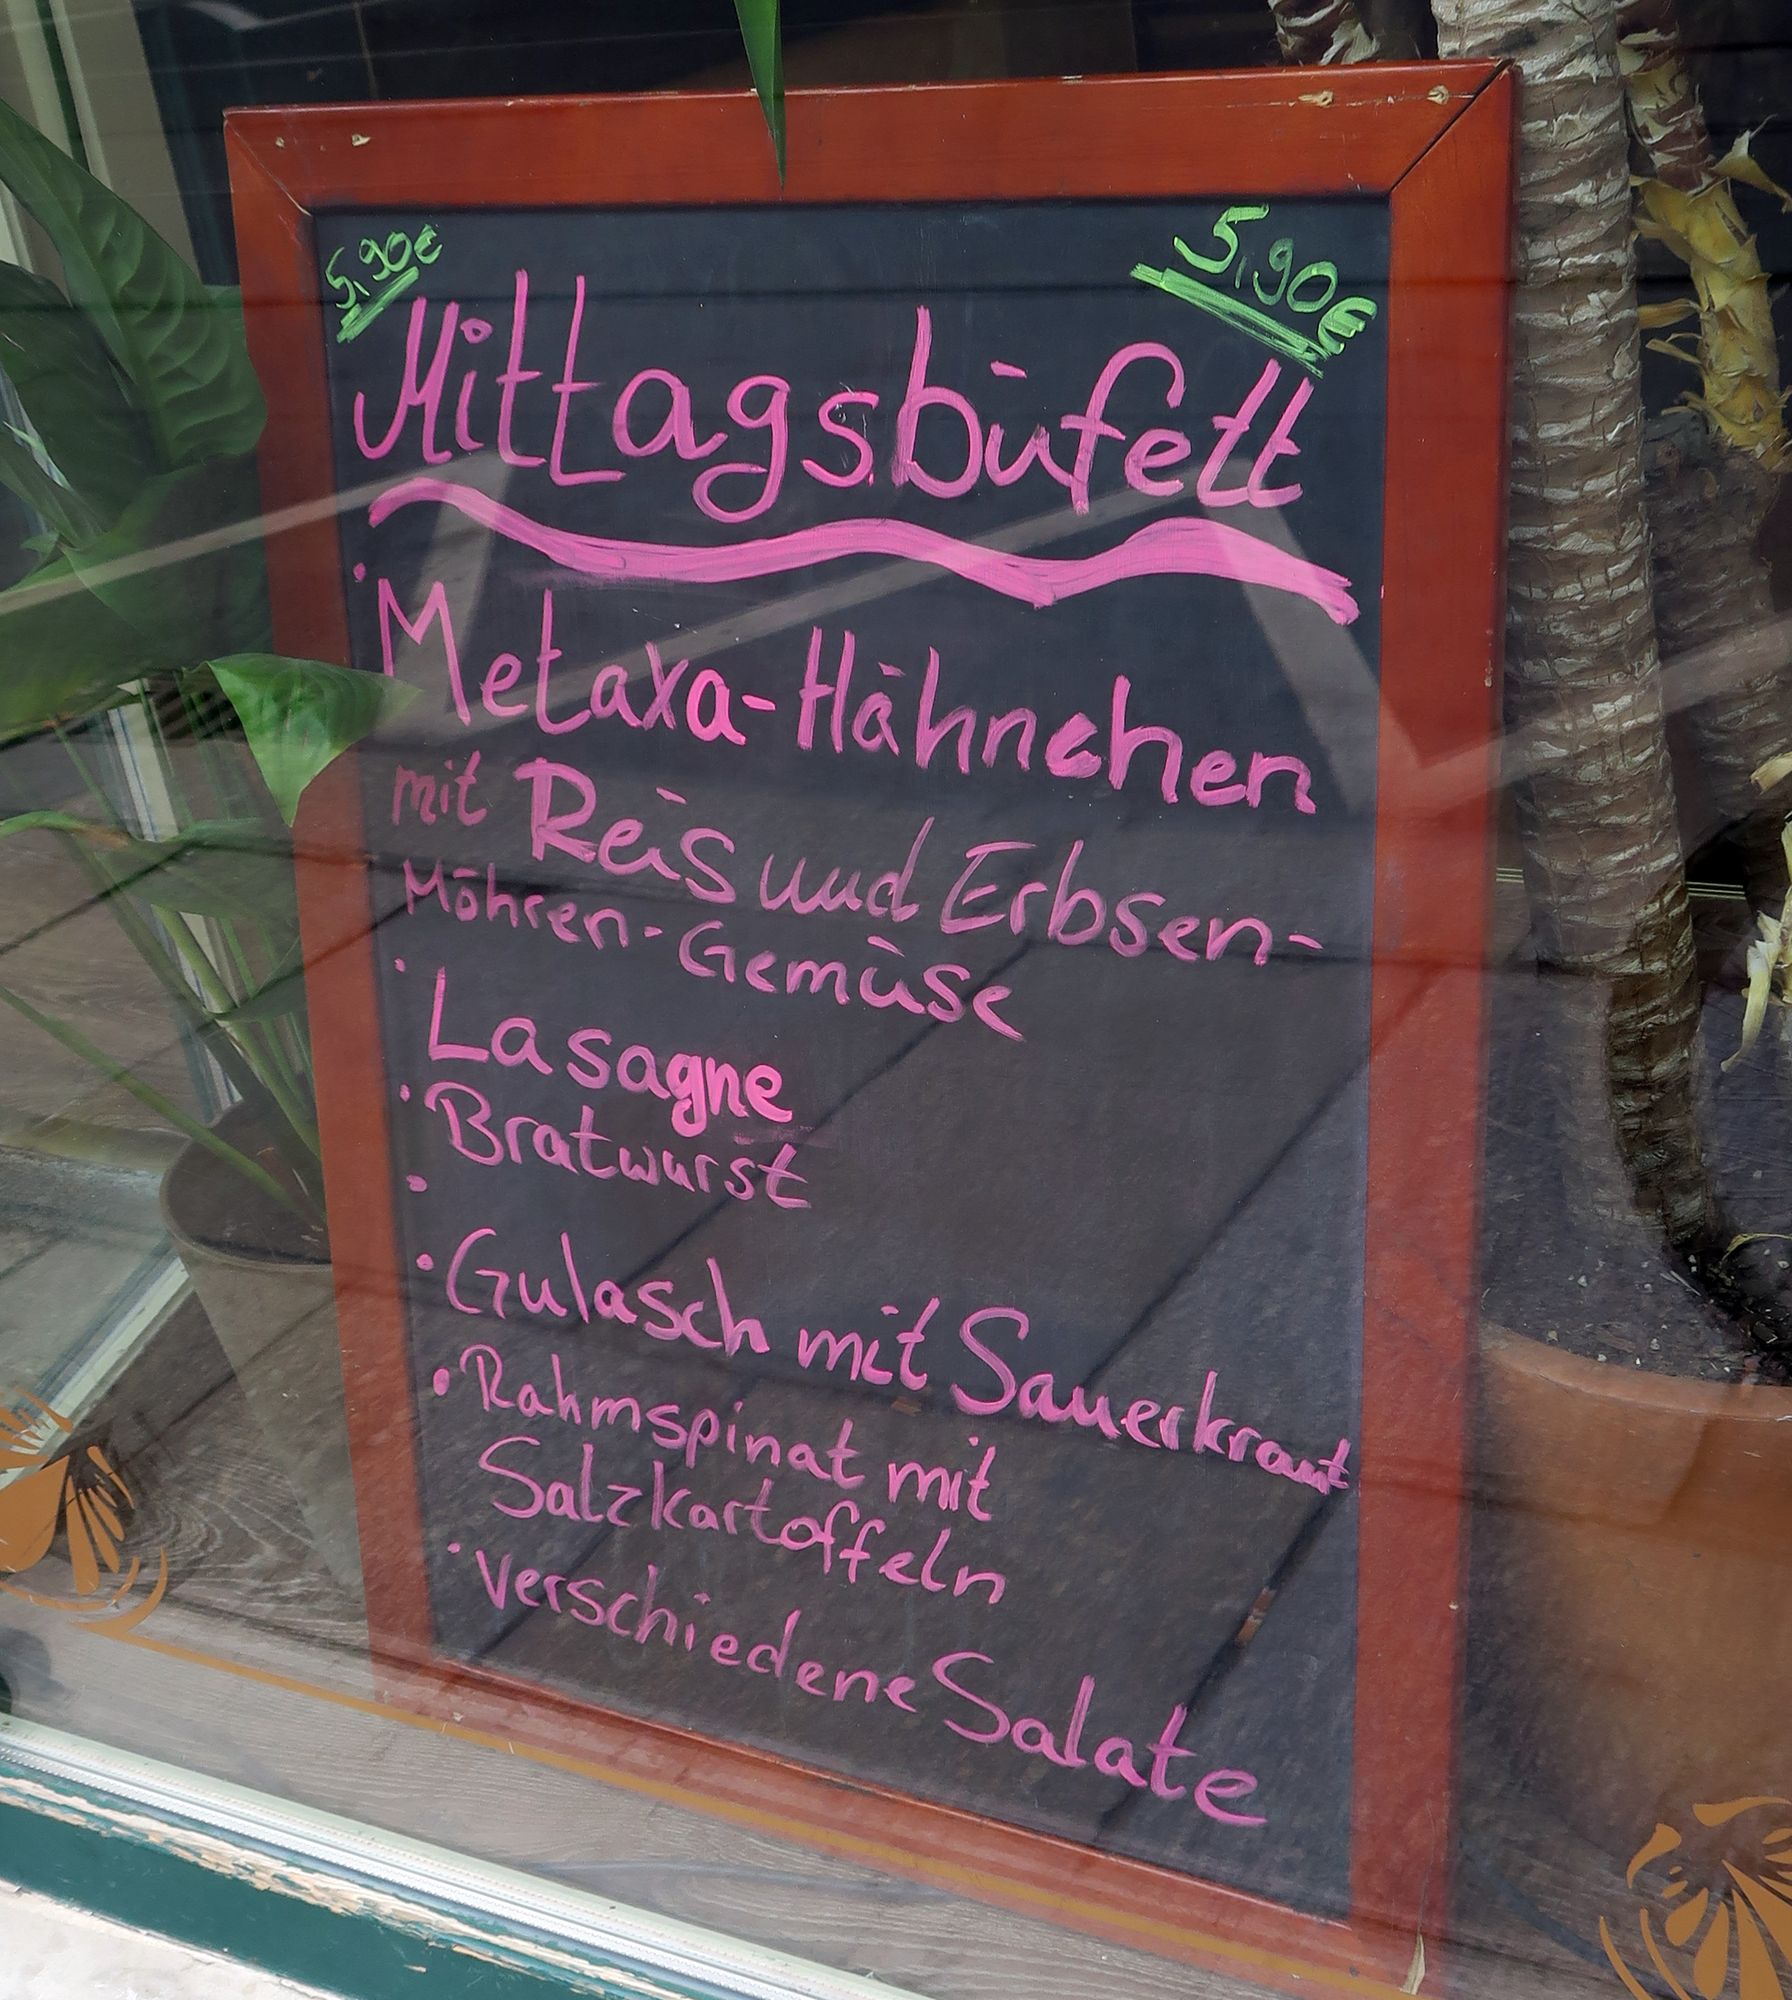 5,90€ 5,90€
Mittagsbüfett
· Metaxa-Hähnchen
mit Reis und Erbsen-
Möhren-Gemüse
· Lasagne
· Bratwurst
·
· Gulasch mit Sauerkraut
· Rahmspinat mit
Salzkartoffeln
· Verschiedene Salate